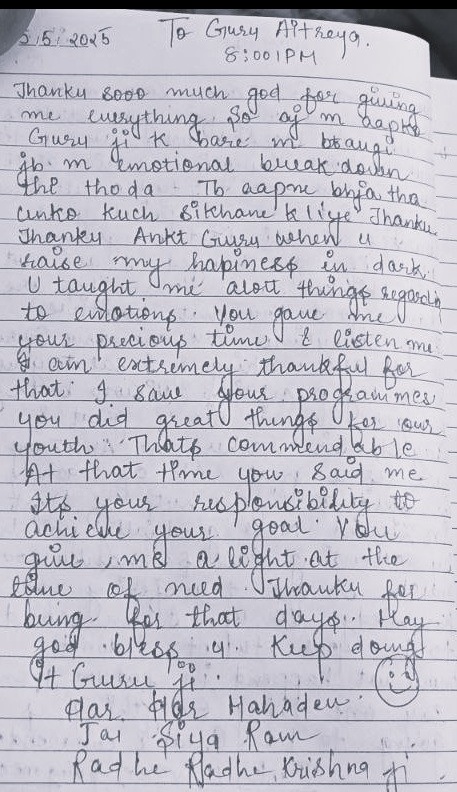 2/5/2025 To Guru Aitreya.
8:001PM
Thanku sooo much god for giving
me everything. So aj m aapko
Guru ji k bare m btaugi
jb m emotional break down
the thoda. Tb aapne bhja tha
unko kuch sikhane k liye Thanku
Thanku Ankt Guru when u
raise my hapiness in dark.
U taught me alott things regardin
to emotions. You gave me
your precious time & listen me
I am extremely thankful for
that. I saw your programmes
you did great things for our
youth. Thats commendable
At that time you said me
Its your responsibility to
achieve your goal. You
give me a light at the
time of need. Thanku for
being for that days. May
god bless u. Keep doing
It Guru ji.
Har Har Mahadev.
Jai Siya Ram
Radhe Radhe Krishna ji